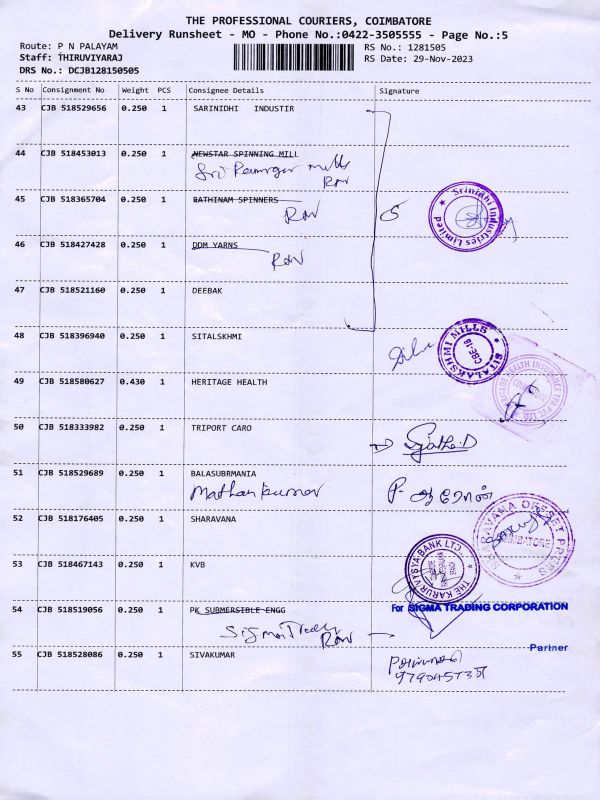 THE PROFESSIONAL COURIERS, COIMBATORE
Delivery Runsheet - MO - Phone No.:0422-3505555 - Page No.:5
Route: P N PALAYAM
RS No.: 1281505
Staff: THIRUVIYARAJ
RS Date: 29-Nov-2023
DRS No.: DCJB128150505
S No Consignment No Weight PCS Consignee Details Signature
43 CJB 518529656 0.250 1 SARINIDHI INDUSTIR
44 CJB 518453013 0.250 1 NEWSTAR SPINNING MILL
Mills
45 CJB 518365704 0.250 1 RATHINAM SPINNERS
Srinidhi Industries Limited
46 CJB 518427428 0.250 1 DDM YARNS
47 CJB 518521160 0.250 1 DEEBAK
48 CJB 518396940 0.250 1 SITALSKHMI
SITALAKSHMI MILLS
CBE-18
49 CJB 518580627 0.430 1 HERITAGE HEALTH
50 CJB 518333982 0.250 1 TRIPORT CARO
51 CJB 518529689 0.250 1 BALASUBRMANIA
Mathan kumar
52 CJB 518176405 0.250 1 SHARAVANA
COIMBATORE
53 CJB 518467143 0.250 1 KVB
THE KARUR VYSYA BANK LTD.
54 CJB 518519056 0.250 1 PK SUBMERSIBLE ENGG
For SIGMA TRADING CORPORATION
Partner
55 CJB 518528086 0.250 1 SIVAKUMAR